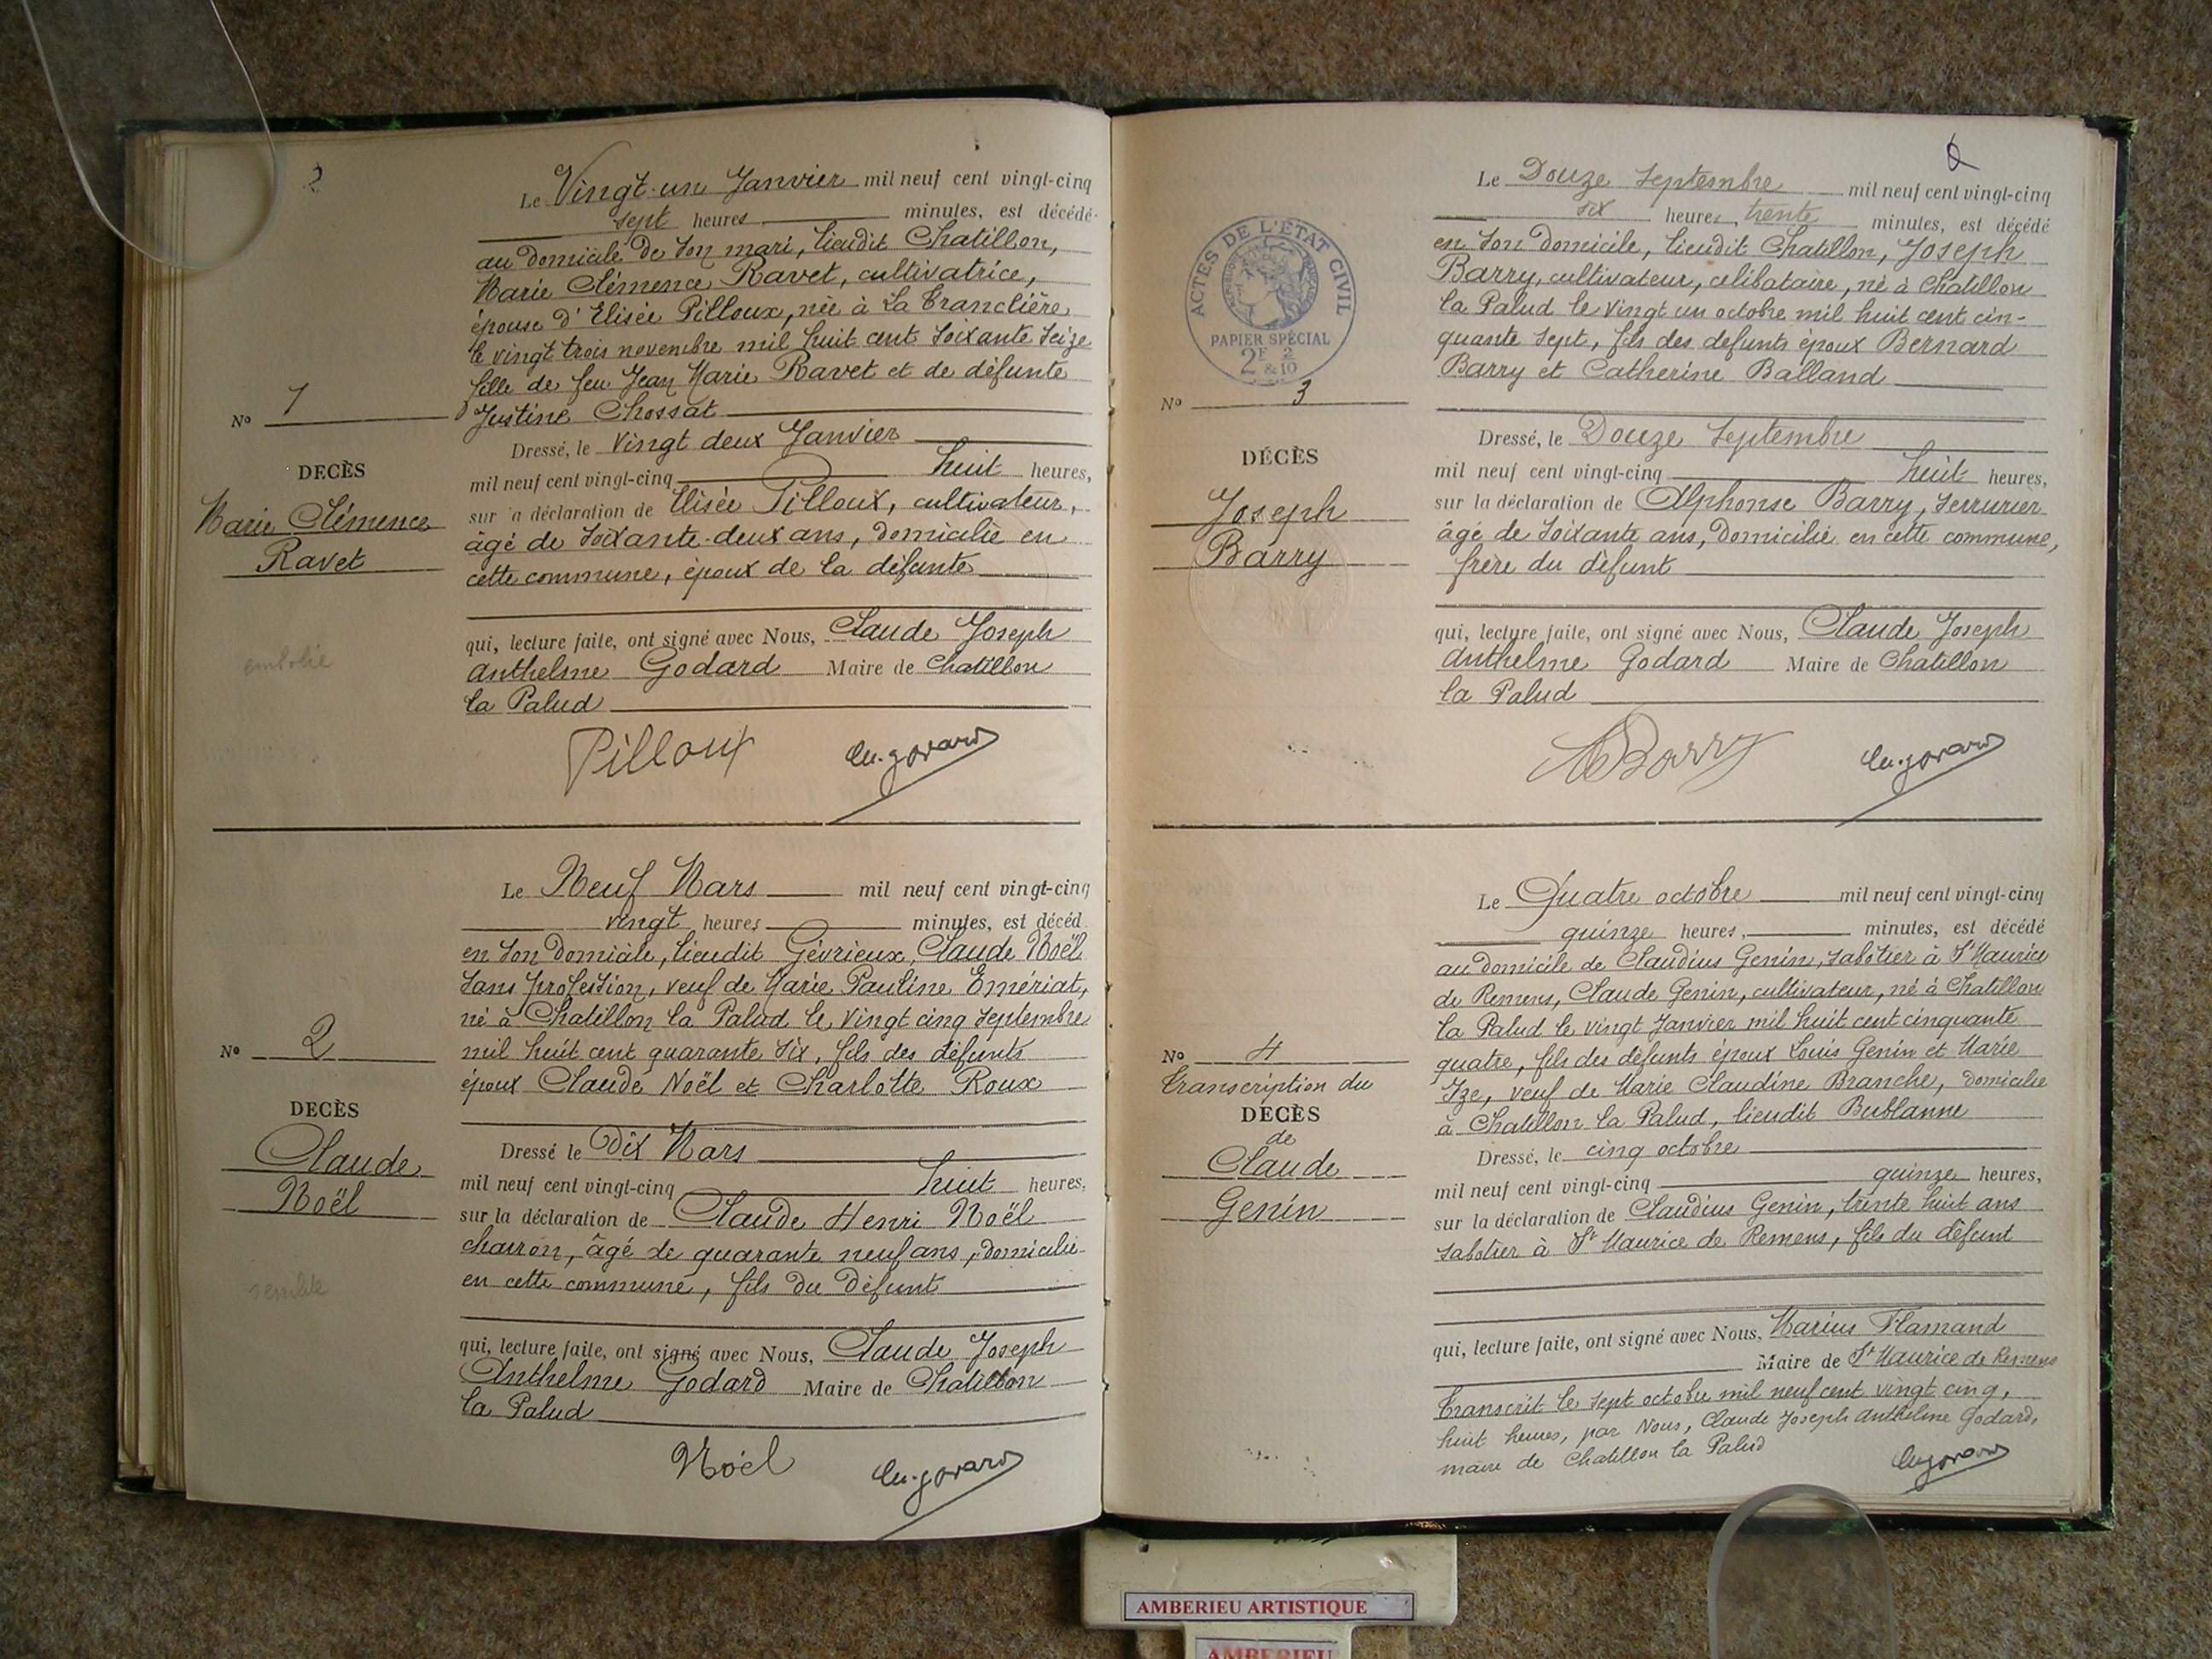 2
Le Vingt-un Janvier mil neuf cent vingt-cinq
sept heures minutes, est décédé
au domicile de son mari, lieudit Chatillon,
Marie Clémence Ravet, cultivatrice,
épouse d'Elisée Pilloux, née à La Tranclière
le vingt trois novembre mil huit cent soixante seize
fille de feu Jean Marie Ravet et de défunte
Justine Chossat
Dressé, le vingt deux Janvier
mil neuf cent vingt-cinq huit heures,
sur a déclaration de Elisée Pilloux, cultivateur,
âgé de soixante-deux ans, domicilié en
cette commune, époux de la défunte
qui, lecture faite, ont signé avec Nous, Claude Joseph
Anthelme Godard Maire de Chatillon
la Palud
Pilloux
No 1
DECÈS
Marie Clémence
Ravet
embolie
Le Neuf Mars mil neuf cent vingt-cinq
vingt heures minutes, est décéd
en son domicile, lieudit Gévrieux, Claude Noël
sans profession, veuf de Marie Pauline Emériat,
né à Chatillon la Palud le vingt cinq septembre
mil huit cent quarante six, fils des défunts
époux Claude Noël et Charlotte Roux
Dressé le Dix Mars
mil neuf cent vingt-cinq huit heures,
sur la déclaration de Claude Henri Noël
charron, âgé de quarante neuf ans, domicilié
en cette commune, fils du défunt
qui, lecture faite, ont signé avec Nous, Claude Joseph
Anthelme Godard Maire de Chatillon
la Palud
Noël
No 2
DECÈS
Claude
Noël
Le Douze septembre mil neuf cent vingt-cinq
six heures, trente minutes, est décédé
en son domicile, lieudit Chatillon, Joseph
Barry, cultivateur, célibataire, né à Chatillon
la Palud le vingt un octobre mil huit cent cin-
quante sept, fils des defunts époux Bernard
Barry et Catherine Balland
Dressé, le Douze septembre
mil neuf cent vingt-cinq huit heures,
sur la déclaration de Alphonse Barry, serrurier
âgé de soixante ans, domicilié en cette commune,
frère du défunt
qui, lecture faite, ont signé avec Nous, Claude Joseph
Anthelme Godard Maire de Chatillon
la Palud
ABarry
ACTES DE L'ÉTAT CIVIL
PAPIER SPÉCIAL
2F 2
& 10
No 3
DÉCÈS
Joseph
Barry
Le Quatre octobre mil neuf cent vingt-cinq
quinze heures, minutes, est décédé
au domicile de Claudius Genin, sabotier à St Maurice
de Remens, Claude Genin, cultivateur, né à Chatillon
la Palud le vingt Janvier mil huit cent cinquante
quatre, fils des défunts époux Louis Genin et Marie
Ize, veuf de Marie Claudine Branche, domicilié
à Chatillon la Palud, lieudit Bublanne
Dressé, le cinq octobre
mil neuf cent vingt-cinq quinze heures,
sur la déclaration de Claudius Genin, trente huit ans
sabotier à St Maurice de Remens, fils du défunt
qui, lecture faite, ont signé avec Nous, Marius Flamand
Maire de St Maurice de Remens
Transcrit le sept octobre mil neuf cent vingt cinq,
huit heures, par Nous, Claude Joseph Anthelme Godard,
maire de Chatillon la Palud
No 4
Transcription du
DECÈS
de
Claude
Genin
AMBERIEU ARTISTIQUE
AMBERIEU